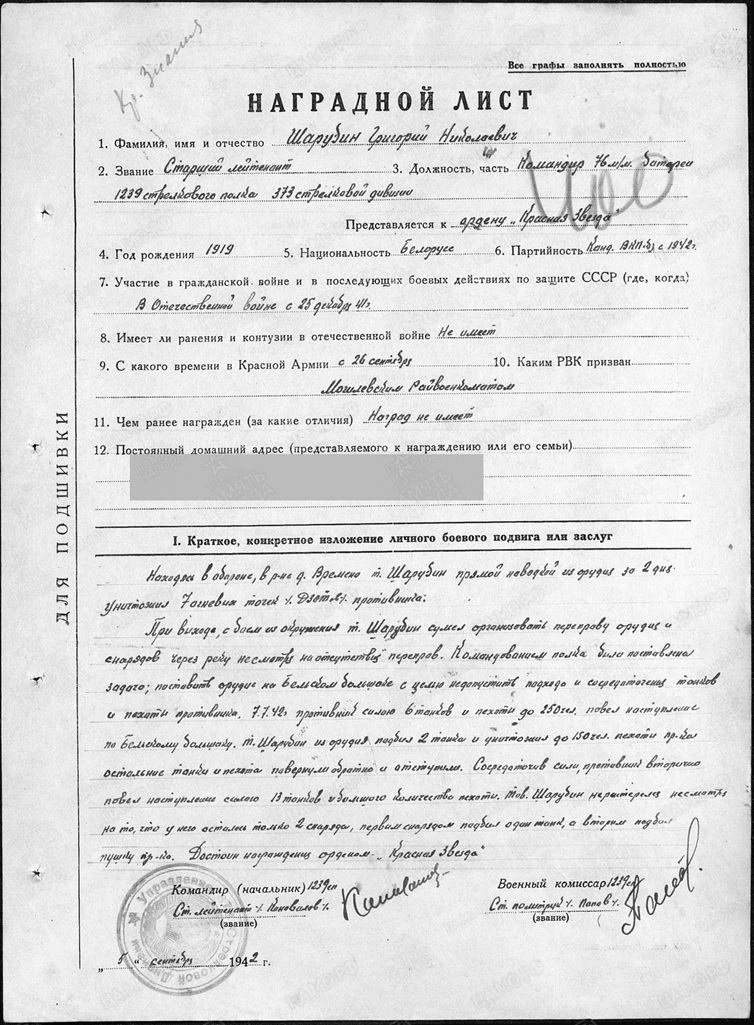 Кр. Знамя
Все графы заполнять полностью
НАГРАДНОЙ ЛИСТ
1. Фамилия, имя и отчество Шарубин Григорий Николаевич
2. Звание Старший лейтенант 3. Должность, часть Командир 76 м/м. батареи
1239 стрелкового полка 373 стрелковой дивизии
Представляется к ордену „Красная Звезда"
4. Год рождения 1919 5. Национальность Белорусс 6. Партийность Канд. ВКП(б) с 1942г.
7. Участие в гражданской войне и в последующих боевых действиях по защите СССР (где, когда)
В Отечественной войне с 25 декабря 41г.
8. Имеет ли ранения и контузии в отечественной войне Не имеет
9. С какого времени в Красной Армии с 26 сентября 10. Каким РВК призван
Могилевским Райвоенкоматом
11. Чем ранее награжден (за какие отличия) Наград не имеет
12. Постоянный домашний адрес (представляемого к награждению или его семьи)
ДЛЯ ПОДШИВКИ
I. Краткое, конкретное изложение личного боевого подвига или заслуг
Находясь в обороне, в р-не д. Времено т. Шарубин прямой наводкой из орудия за 2 дня
уничтожил 7 огневых точек противника.
При выходе, с боем из окружения т. Шарубин сумел организовать переправу орудия и
снарядов через реку несмотря на отсутствия переправ. Командованием полка была поставлена
задача; поставить орудие на Бельском большаке с целью недопустить подхода и сосредоточения танков
и пехоты противника. 7.7.42г. противник силою 6 танков и пехоты до 250 чел. повел наступление
по Бельскому большаку. т. Шарубин из орудия подбил 2 танка и уничтожил до 150 чел. пехоты пр-ка
остальные танки и пехота повернули обратно и отступили. Сосредоточив силы, противник вторично
повел наступление силою 13 танков и большого количества пехоты. Тов. Шарубин нерастерялся несмотря
на то, что у него осталось только 2 снаряда, первым снарядом подбил один танк, а вторым подбил
пушку пр-ка. Достоин награждения орденом - „Красная Звезда"
Командир (начальник) 1239 сп Военный комиссар 1239 сп
Ст. лейтенант Коновалов Ст. политрук Попов
(звание) (звание)
„5" сентября 1942 г.